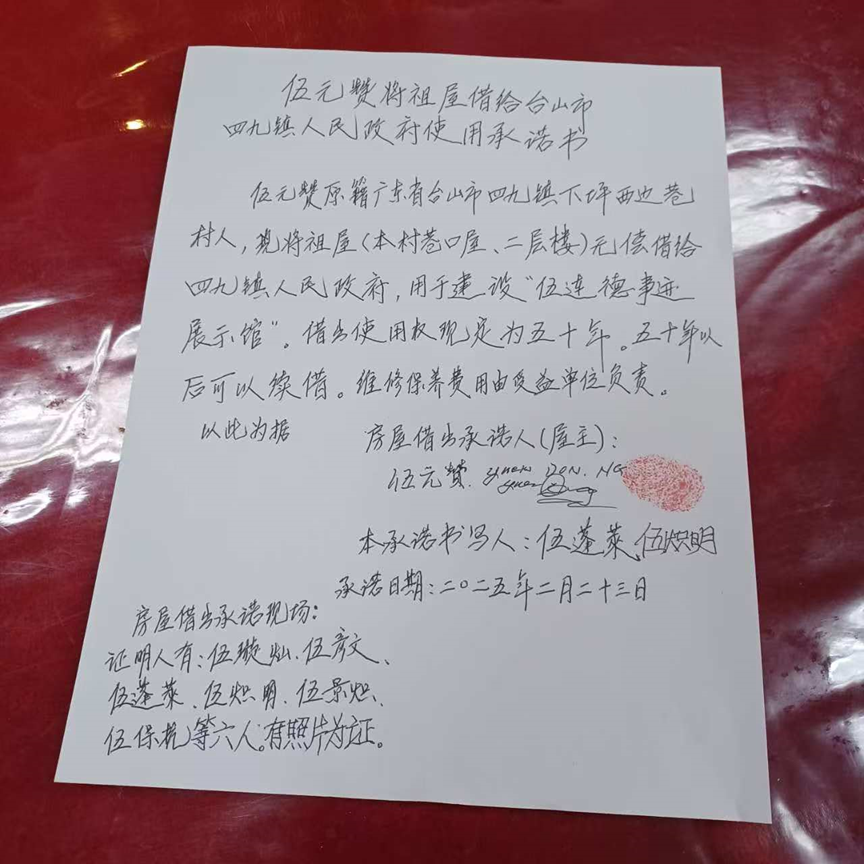 伍元赞将祖屋借给台山市
四九镇人民政府使用承诺书
伍元赞原籍广东省台山市四九镇下坪西边巷
村人，现将祖屋（本村巷口屋、二层楼）无偿借给
四九镇人民政府，用于建设“伍连德事迹
展示馆”。借出使用权观定为五十年。五十年以
后可以续借。维修保养费用由受益单位负责。
以此为据
房屋借出承诺人（屋主）：
伍元赞. YUEN DEN. NG
本承诺书写人：伍蓬莱、伍炽明
承诺日期：二〇二五年二月二十三日
房屋借出承诺现场：
证明人有：伍璇灿、伍彦文、
伍蓬莱、伍炽明、伍景炽、
伍保杭等六人。有照片为证。